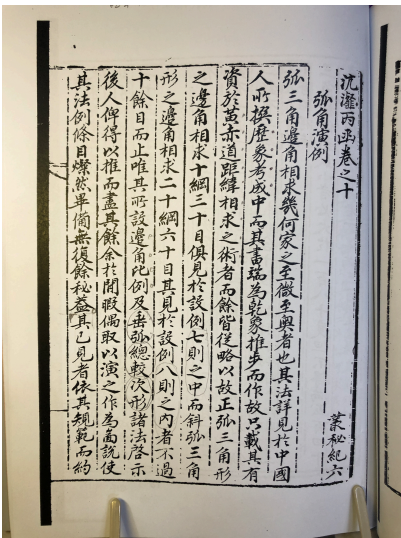 沆瀣丙函卷之十
叢秘紀六
弧角演例
弧三角邊角相求幾何家之至微至奧者也其法詳見於中國
人所撰歷象考成中而其書瑞為乾象推步而作故只載其有
資於黃赤道距緯相求之術者而餘皆從略以故正弧三角形
之邊角相求十綱三十目俱見於設例七則之中而斜弧三角
形之邊角相求二十綱六十目其見於設例八則之內者不過
十餘目而止唯其所設邊角比例及垂弧總較次形諸法啓示
後人俾得以推而盡其餘余於閒暇偶取以演之作為啚說使
其法例條目燦然畢備無復餘秘益其已見者依其規範而約